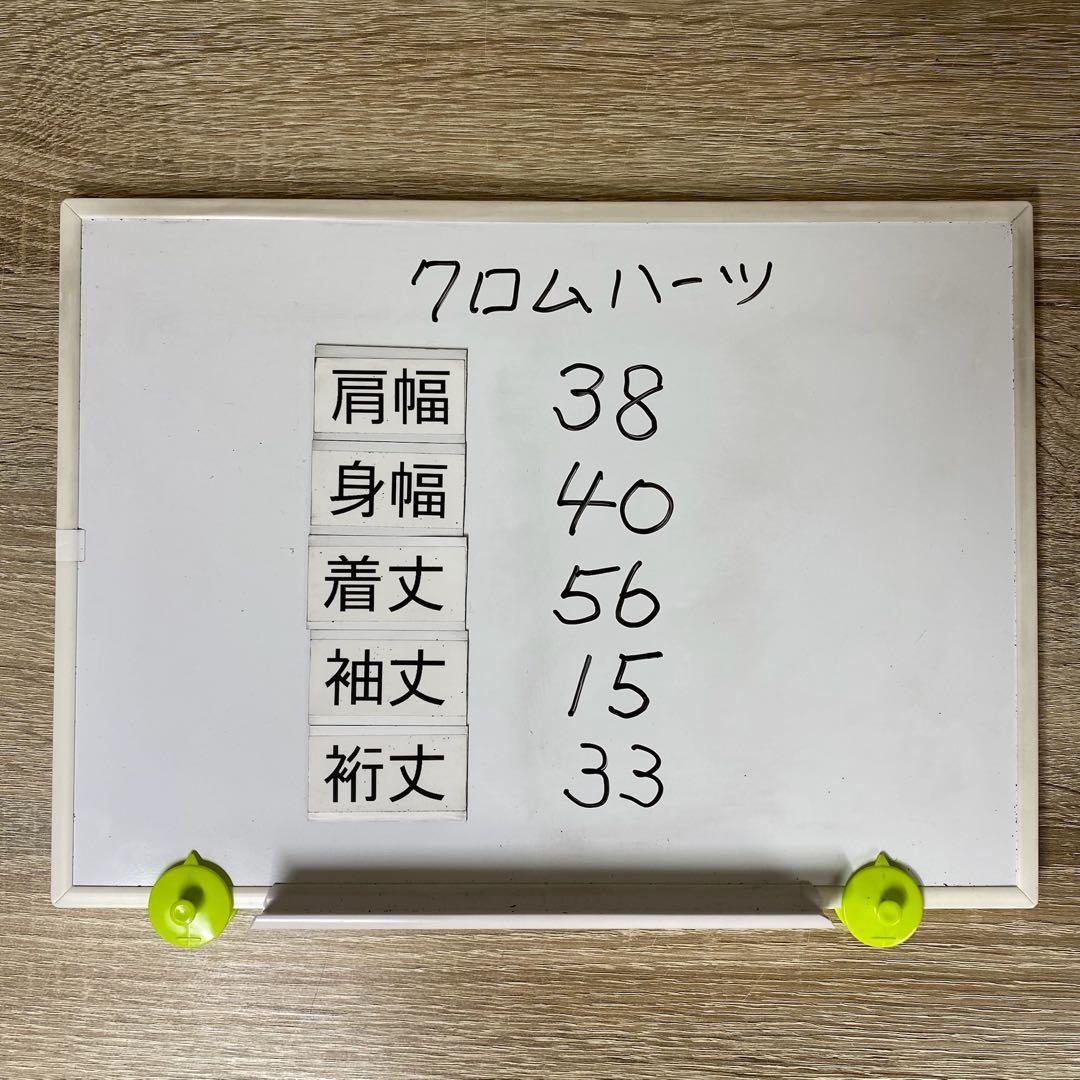 クロムハーツ
肩幅 38
身幅 40
着丈 56
袖丈 15
裄丈 33